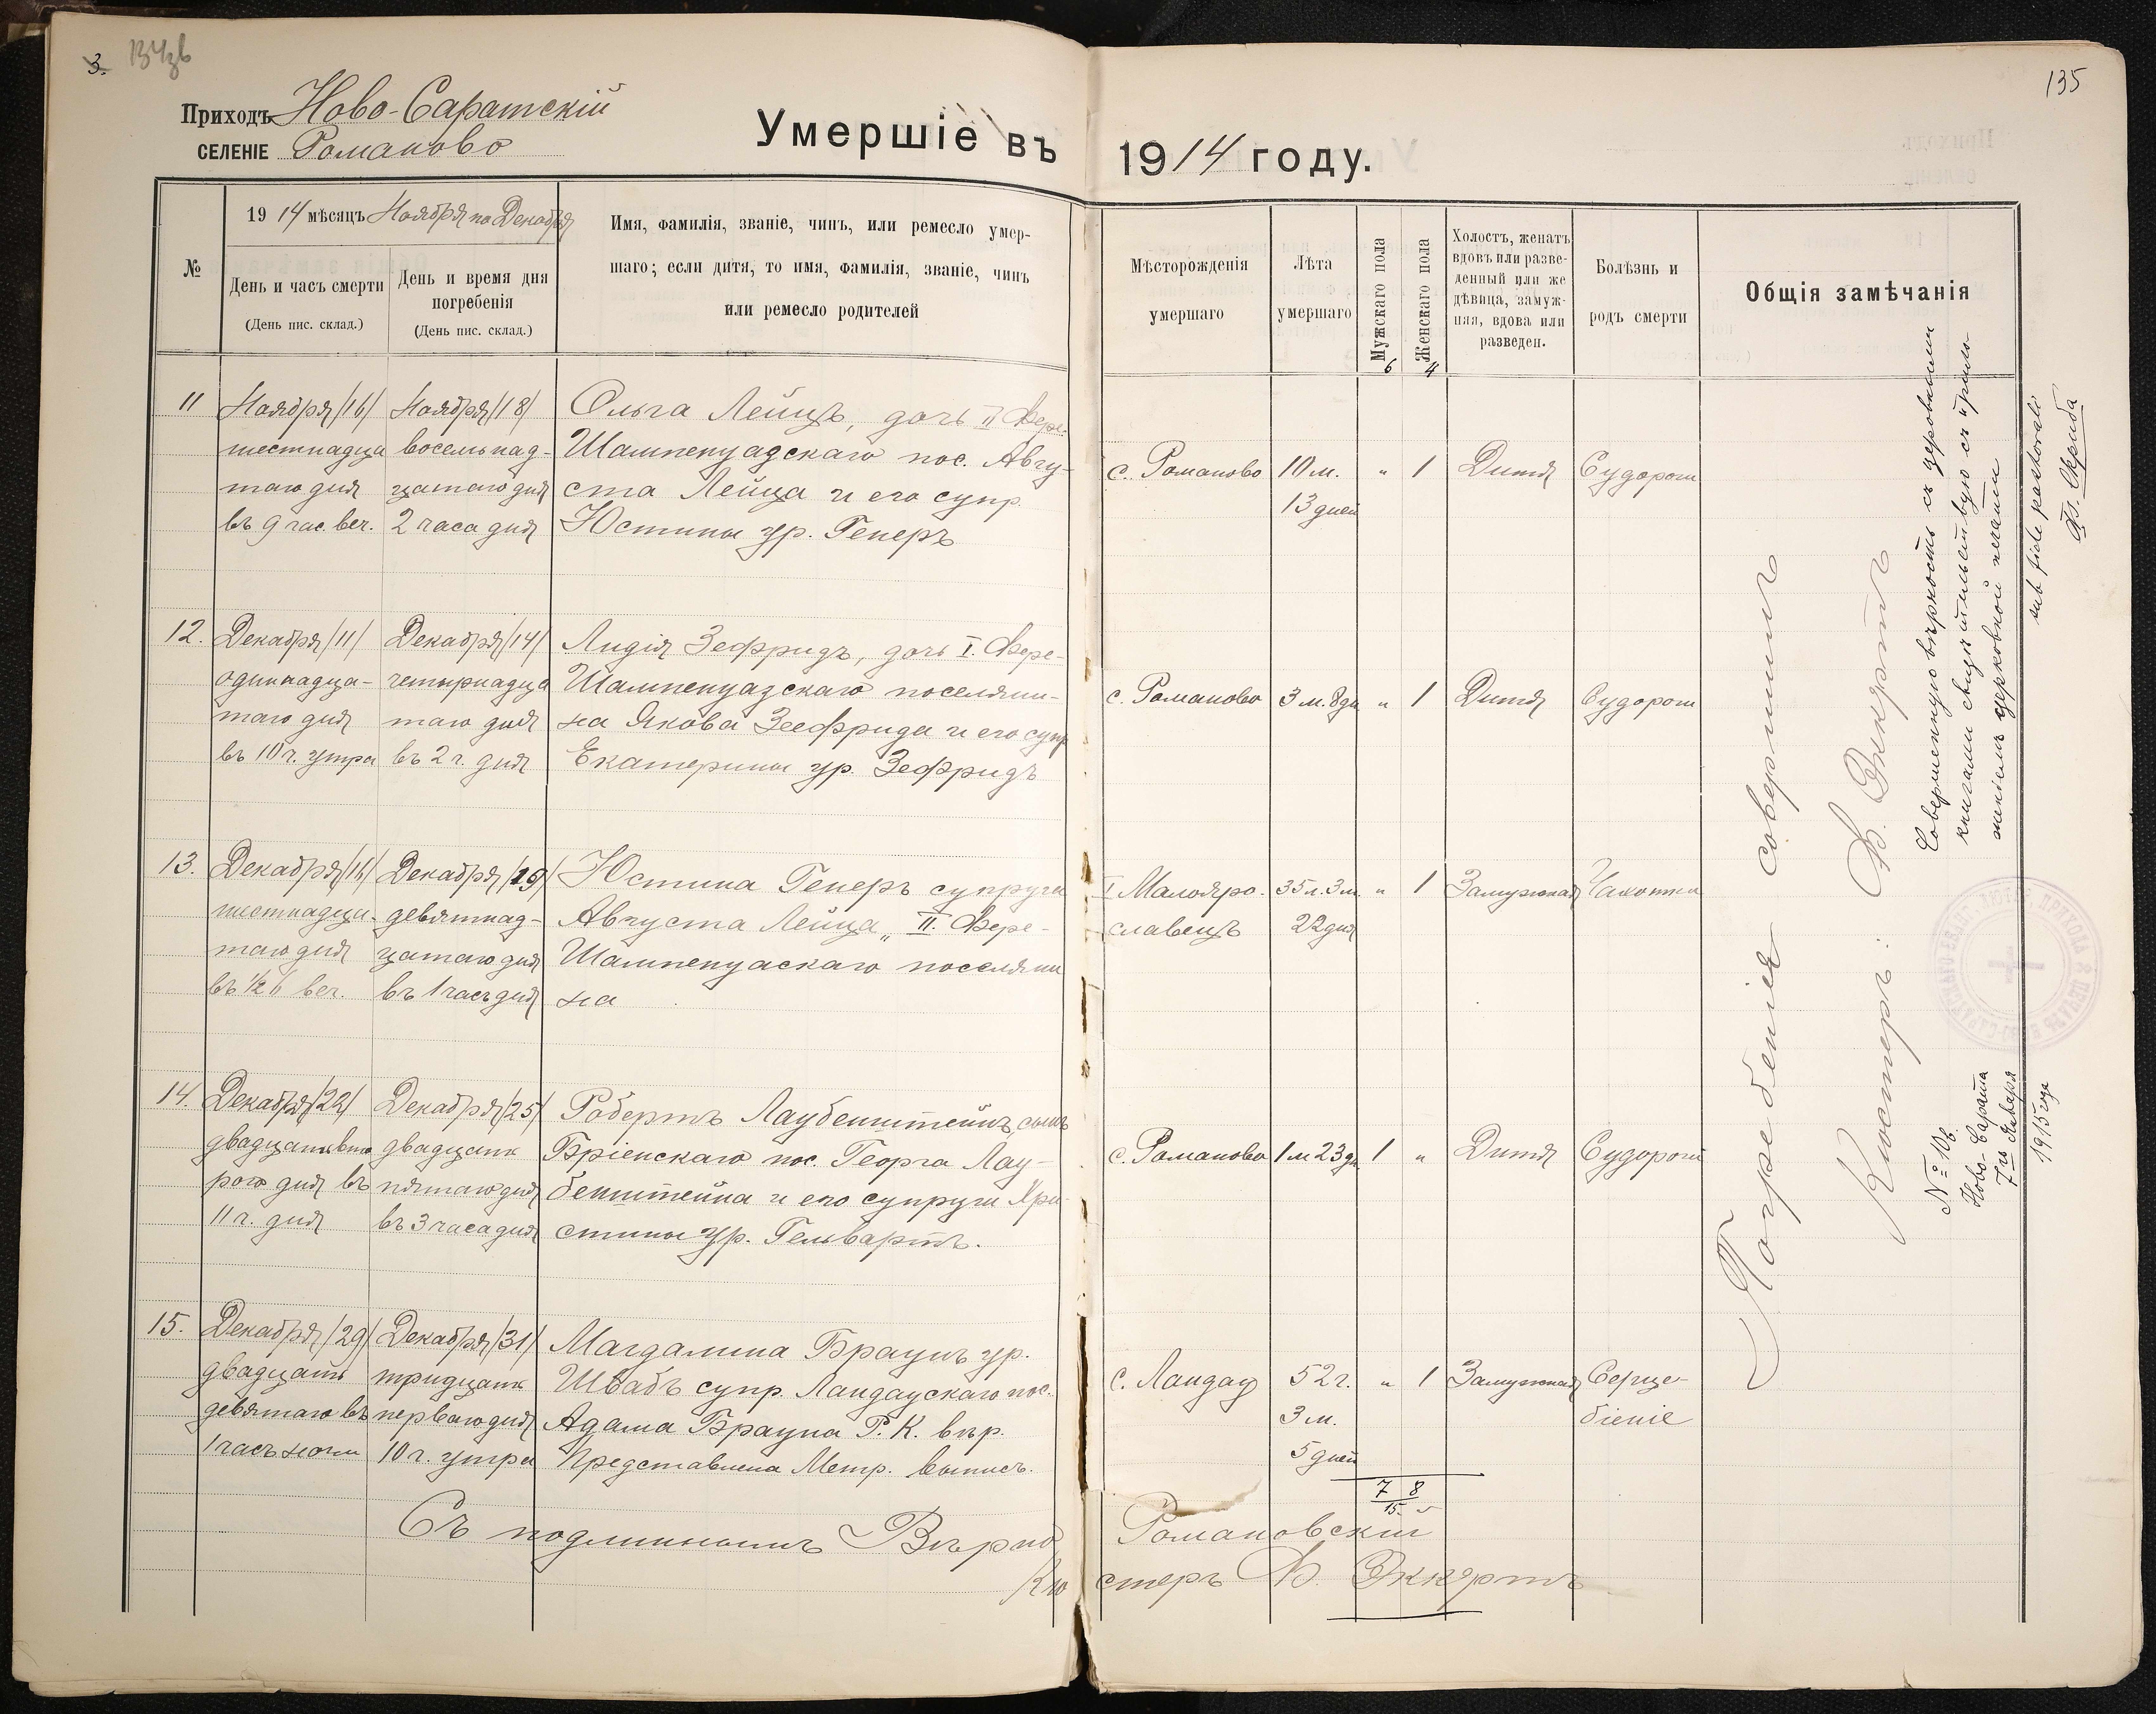 3.
134об
135
Приходъ Ново-Саратскій
СЕЛЕНІЕ Романово
Умершіе въ 1914 году.
№
1914 мѣсяцъ Ноября по Декабря
День и часъ смерти
(День пис. склад.)
День и время дня
погребенія
(День пис. склад.)
Имя, фамилія, званіе, чинъ, или ремесло умер-
шаго; если дитя, то имя, фамилія, званіе, чинъ
или ремесло родителей
Мѣсторожденія
умершаго
Лѣта
умершаго
Мужскаго пола
6
Женскаго пола
4
Холостъ, женатъ
вдовъ или разве-
денный или же
дѣвица, замуж-
няя, вдова или
разведен.
Болѣзнь и
родъ смерти
Общія замѣчанія
11
Ноября /16/
шестнадца
таго дня
въ 9 час. веч.
Ноября /18/
восемьнад-
цатаго дня
2 часа дня
Ольга Лейцъ, дочь II Фере-
Шампенуадскаго пос. Авгу-
ста Лейца и его супр.
Юстины ур. Геперъ
с. Романово
10 м.
13 дней
" 1
Дитя
Судороги
12.
Декабря /11/
одиннадца-
таго дня
въ 10 ч. утра
Декабря /14/
четырнадца
таго дня
въ 2 ч. дня
Лидія Зефридъ, дочь I. Фере-
Шампенуазскаго поселяни-
на Якова Зеефрида и его супр
Екатерины ур. Зефридъ
с. Романово
3 м. 8 дн
" 1
Дитя
Судороги
13.
Декабря /16/
шестнадца-
таго дня
въ ½ 6 веч.
Декабря /19/
девятнад-
цатаго дня
въ 1 часъ дня
Юстина Геперъ супруга
Августа Лейца,, II. Фере-
Шампенуаскаго поселяни
на
I Малояро-
славецъ
35 л. 3 м.
22 дня
" 1
Замужная
Чахотка
14.
Декабря /22/
двадцать вто
рого дня въ
11 ч. дня
Декабря /25/
двадцать
пятаго дня
въ 3 часа дня
Робертъ Лаубенштейнъ, сынъ
Бріенскаго пос. Георга Лау-
бенштейна и его супруги Хри-
стины ур. Гельвартъ.
с. Романово
1 м 23 дн.
1 "
Дитя
Судороги
15.
Декабря /29/
двадцать
девятаго въ
1 часъ ночи
Декабря /31/
тридцать
перваго дня
10 ч. утра
Магдалина Браунъ ур.
Швабъ супр. Ландаускаго пос.
Адама Брауна Р. К. вѣр.
Представлена Метр. выпись.
с. Ландау
52 г.
3 м.
5 дней
" 1
Замужная
Серце-
біеніе
7 8
15.
Съ подлиннымъ Вѣрно Романовскій
Кюстеръ Ф. Эккертъ
Погребеніе совершилъ
Кюстеръ: Ф. Эккертъ
Совершенную вѣрность съ церковными
книгами свидѣтельствую съ прило-
женіемъ церковной печати
sub fide pastorali
№ 106.
Ново-Сарата
7го Января
1915 года